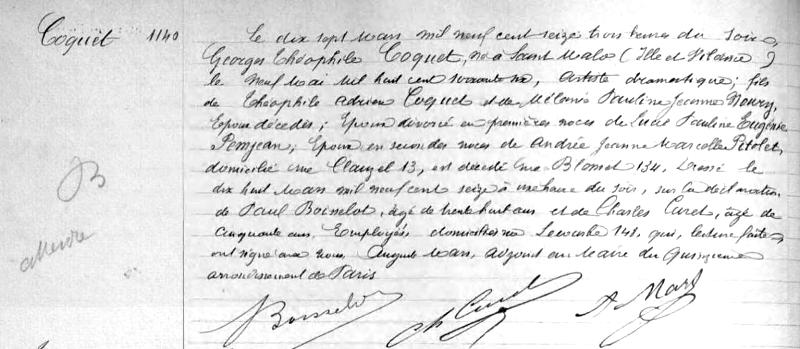 Coquet 1140
Le dix sept Mars mil neuf cent seize trois heures du soir,
Georges Théophile Coquet, né à Saint Malo (Ille et Vilaine)
le neuf Mai Mil huit cent soixante six, artiste dramatique; fils
de Théophile Adrien Coquet et de Mélanie Pauline Jeanne Noury,
Epoux décédés; Epoux divorcé en premières noces de Lucie Pauline Eugénie
Pemjean; Epoux en secondes noces de Andrée Jeanne Marcelle Pitolet,
domicilié rue Clauzel 13, est décédé rue Blomet 134. Dressé le
dix huit Mars mil neuf cent seize à une heure du soir, sur la déclaration
de Paul Boisselot, âgé de trente huit ans et de Charles Curet, âgé de
cinquante ans, Employés, domiciliés rue Lecourbe 148, qui, lecture faite
ont signé avec Nous, Auguste Mars, adjoint au Maire du quinzième
arrondissement de Paris
B
Boisselot Ch Curet A Mars